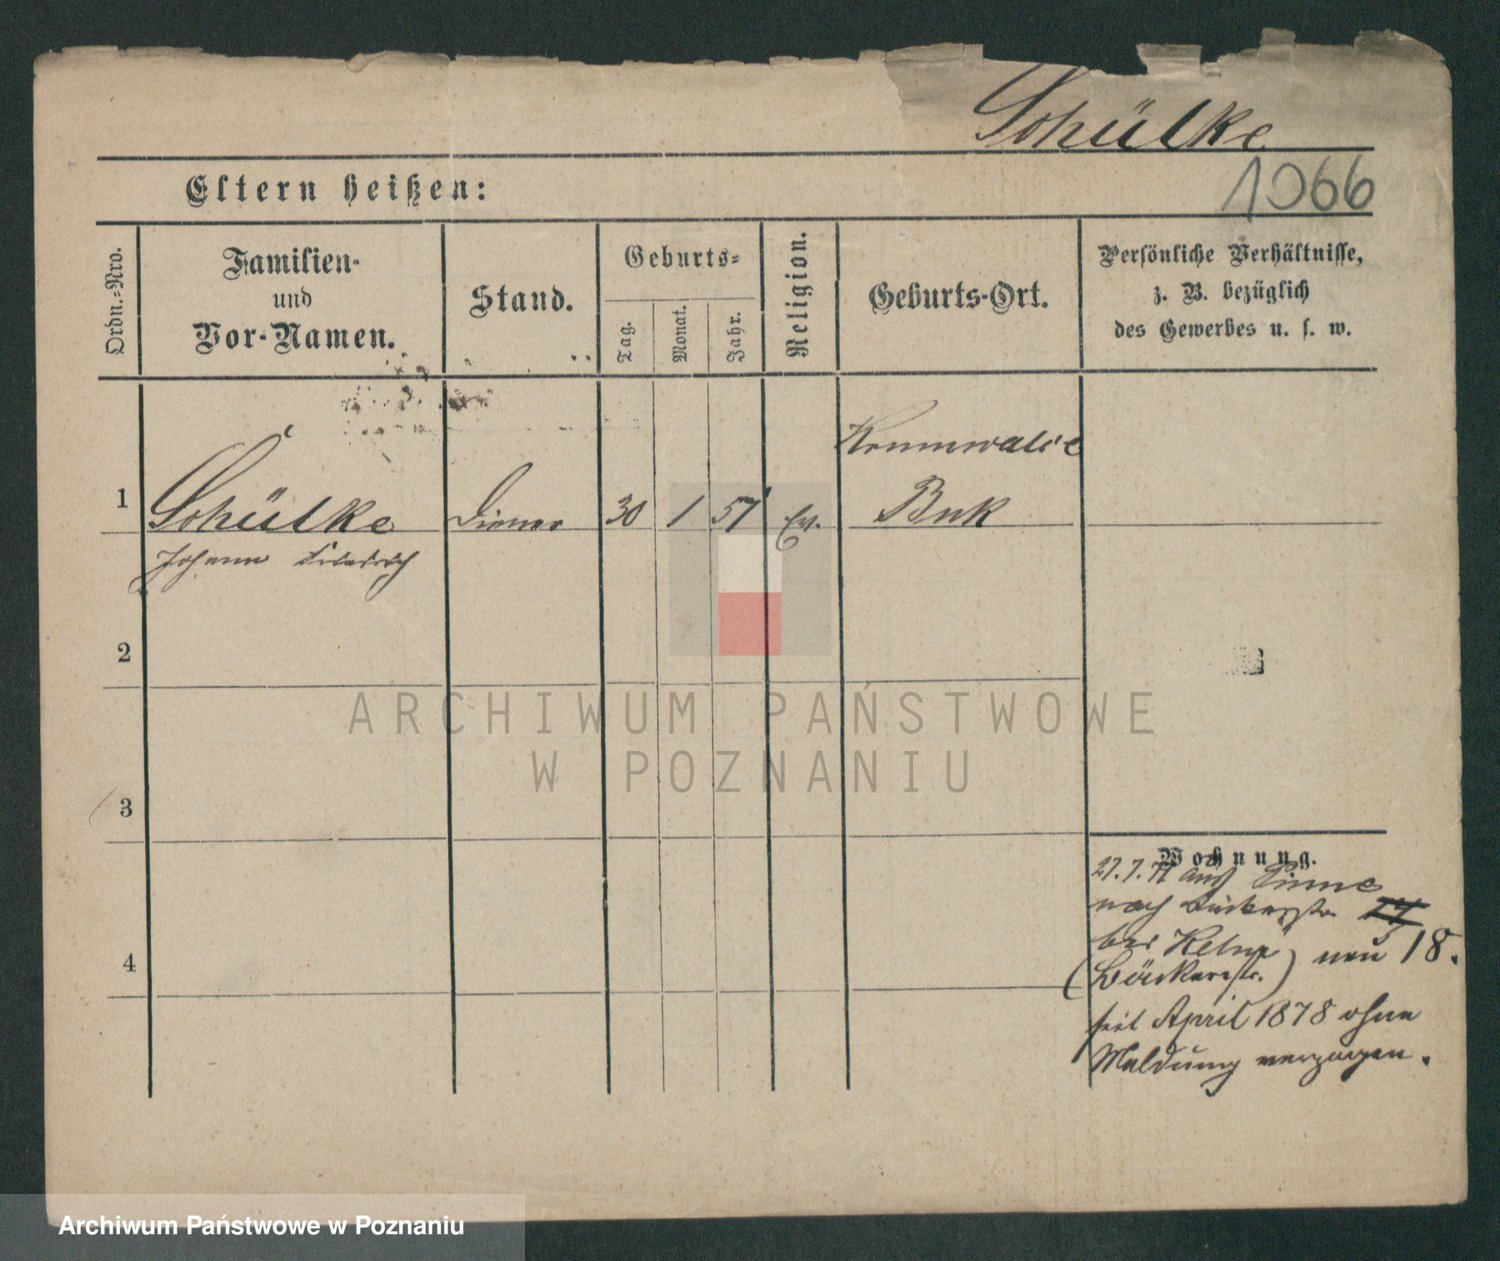 Schülke
1066
Eltern heißen:
Ordn.-Nro.
Familien-
und
Vor-Namen.
Stand.
Geburts-
Tag.
Monat.
Jahr.
Religion.
Geburts-Ort.
Persönliche Verhältnisse,
z. B. bezüglich
des Gewerbes u. s. w.
1 Schülke Diener 30 1 57 Ev. Buk
Johann Friedrich
2
3
4
Wohnung.
27.7.77 aus Pinne
nach Bäckerstr. 24
bei neu 18.
(Bäckerstr.)
seit April 1878 ohne
Meldung verzogen.
ARCHIWUM PAŃSTWOWE
W POZNANIU
Archiwum Państwowe w Poznaniu